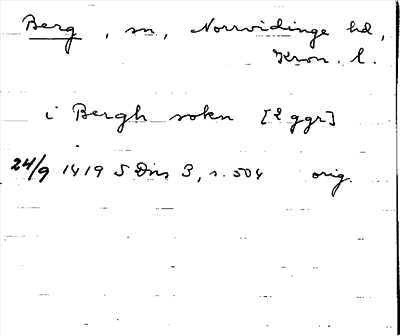 Berg, sn, Norrvidinge hd,
Kron. l.
i Bergh sokn [2 ggr]
24/9 1419 SDns 3, s. 504 orig.